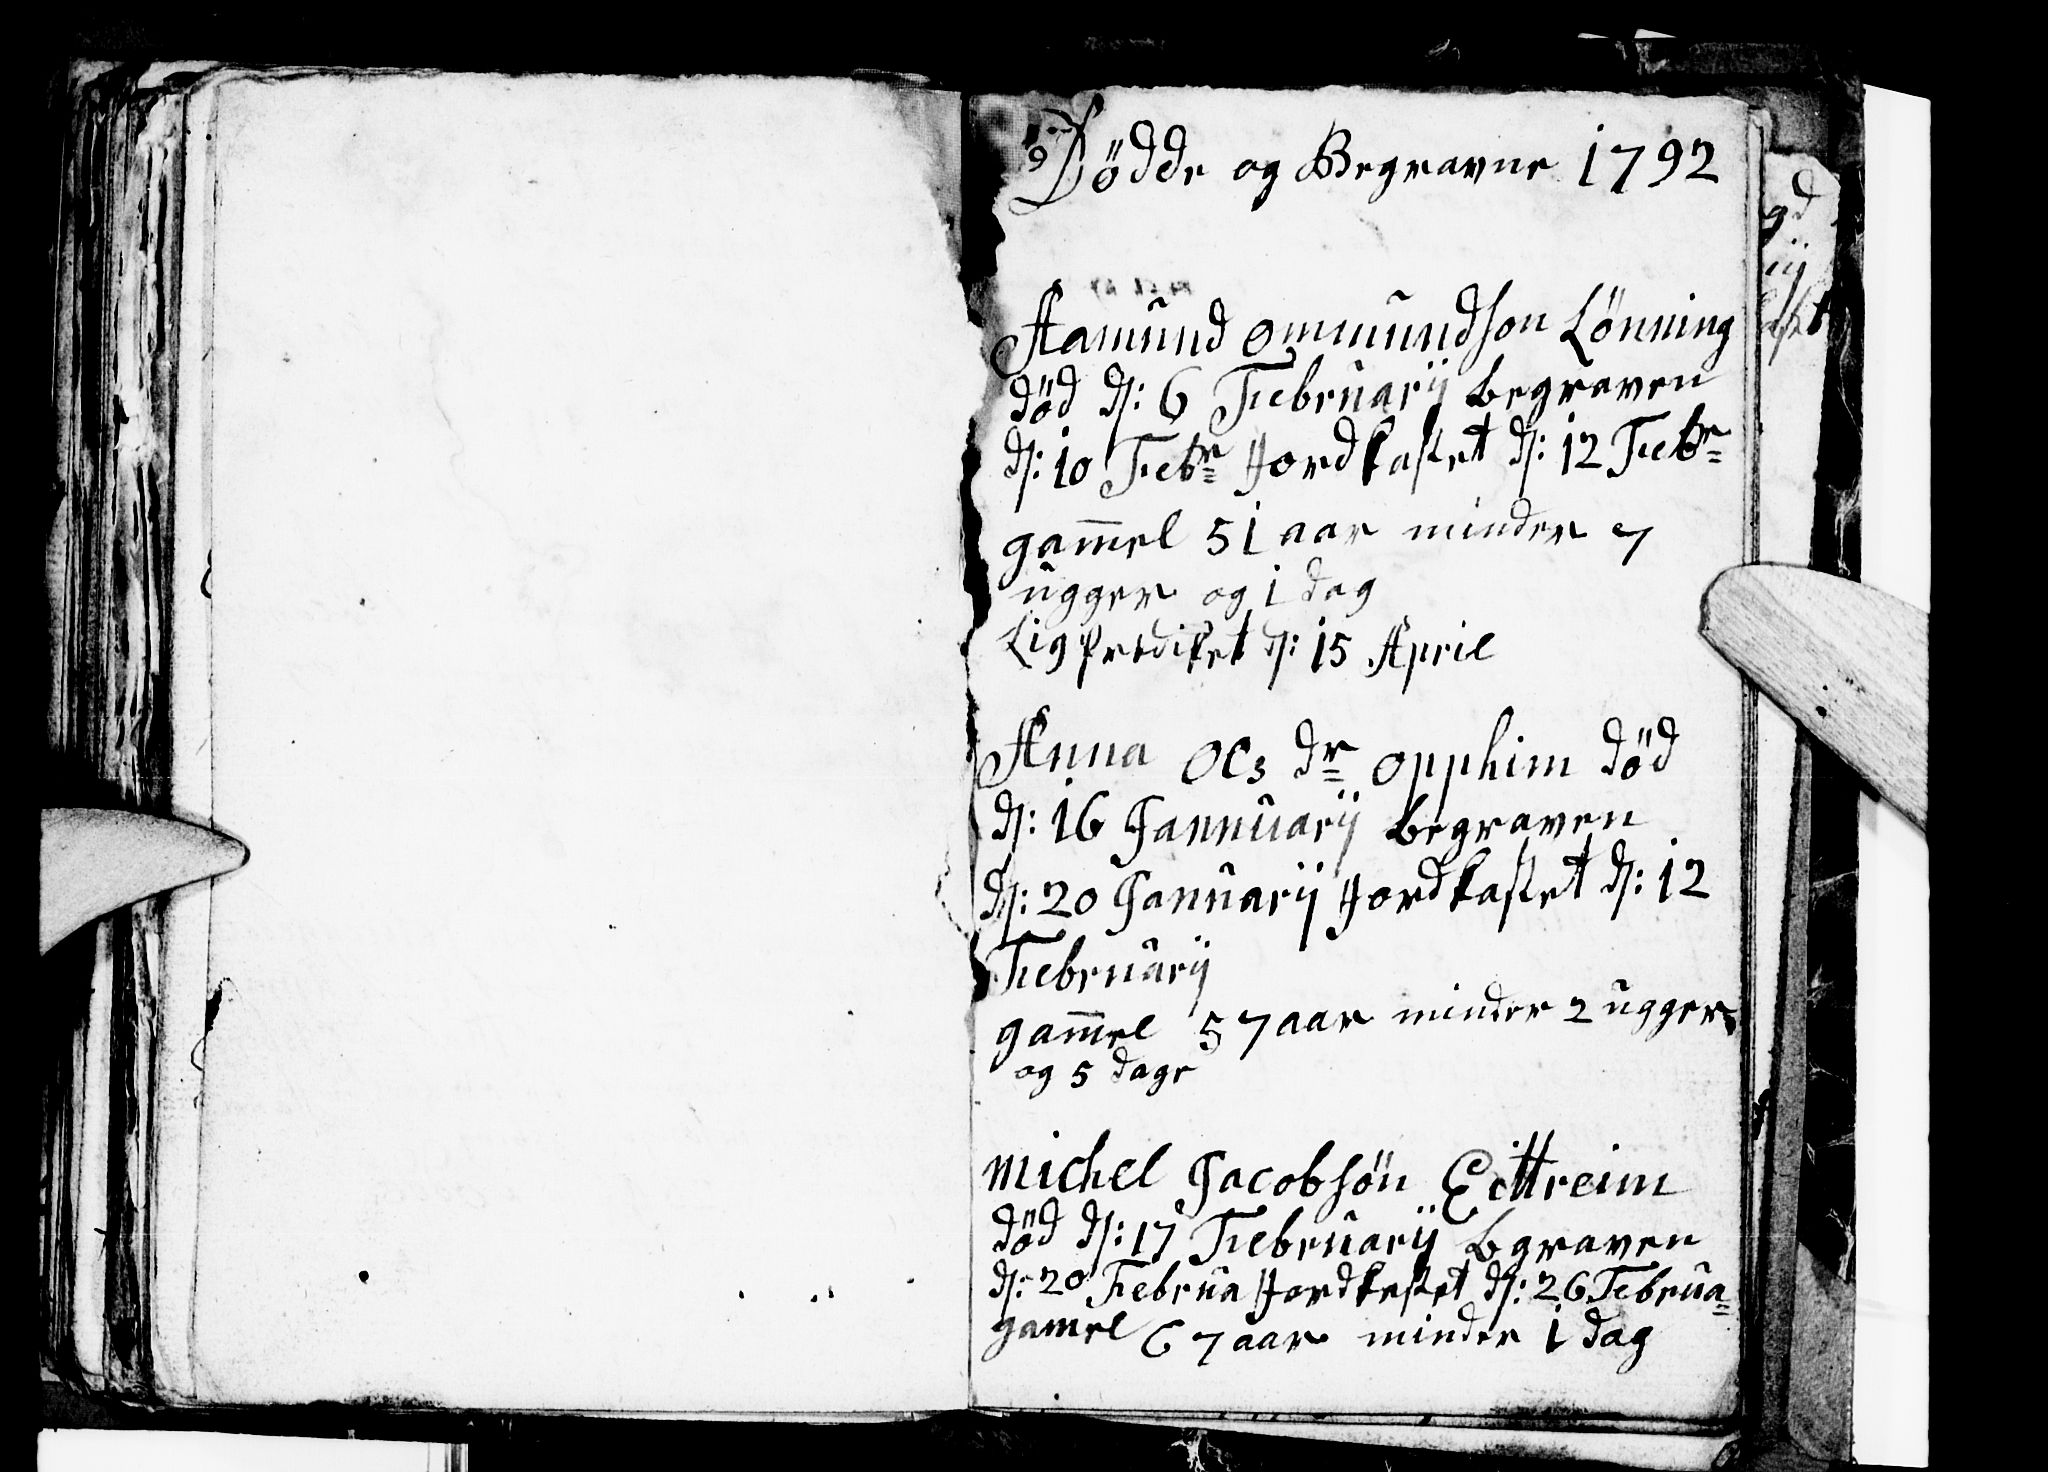 Dödde og Begravne 1792
Aamund Ommundson Lönning
död ds: 6 Februarij begraven
ds: 10 Febr Jordkastet ds: 12 Febr
gam̅el 51 aar minder 7
ugger og 1 dag
Lig prediket ds: 15 April
Anna Ols dr Opphim död
ds: 16 Jannuarij begraven
ds: 20 Januarij Jordkastet ds: 12
Februarij
gam̅el 57 aar minder 2 ugger
og 5 dage
Michel Jacobsön Eittreim
död ds: 17 Februarij bgraven
ds: 20 Februa Jordkastet ds: 26 Februa
gamel 67 aar minder 1 dag